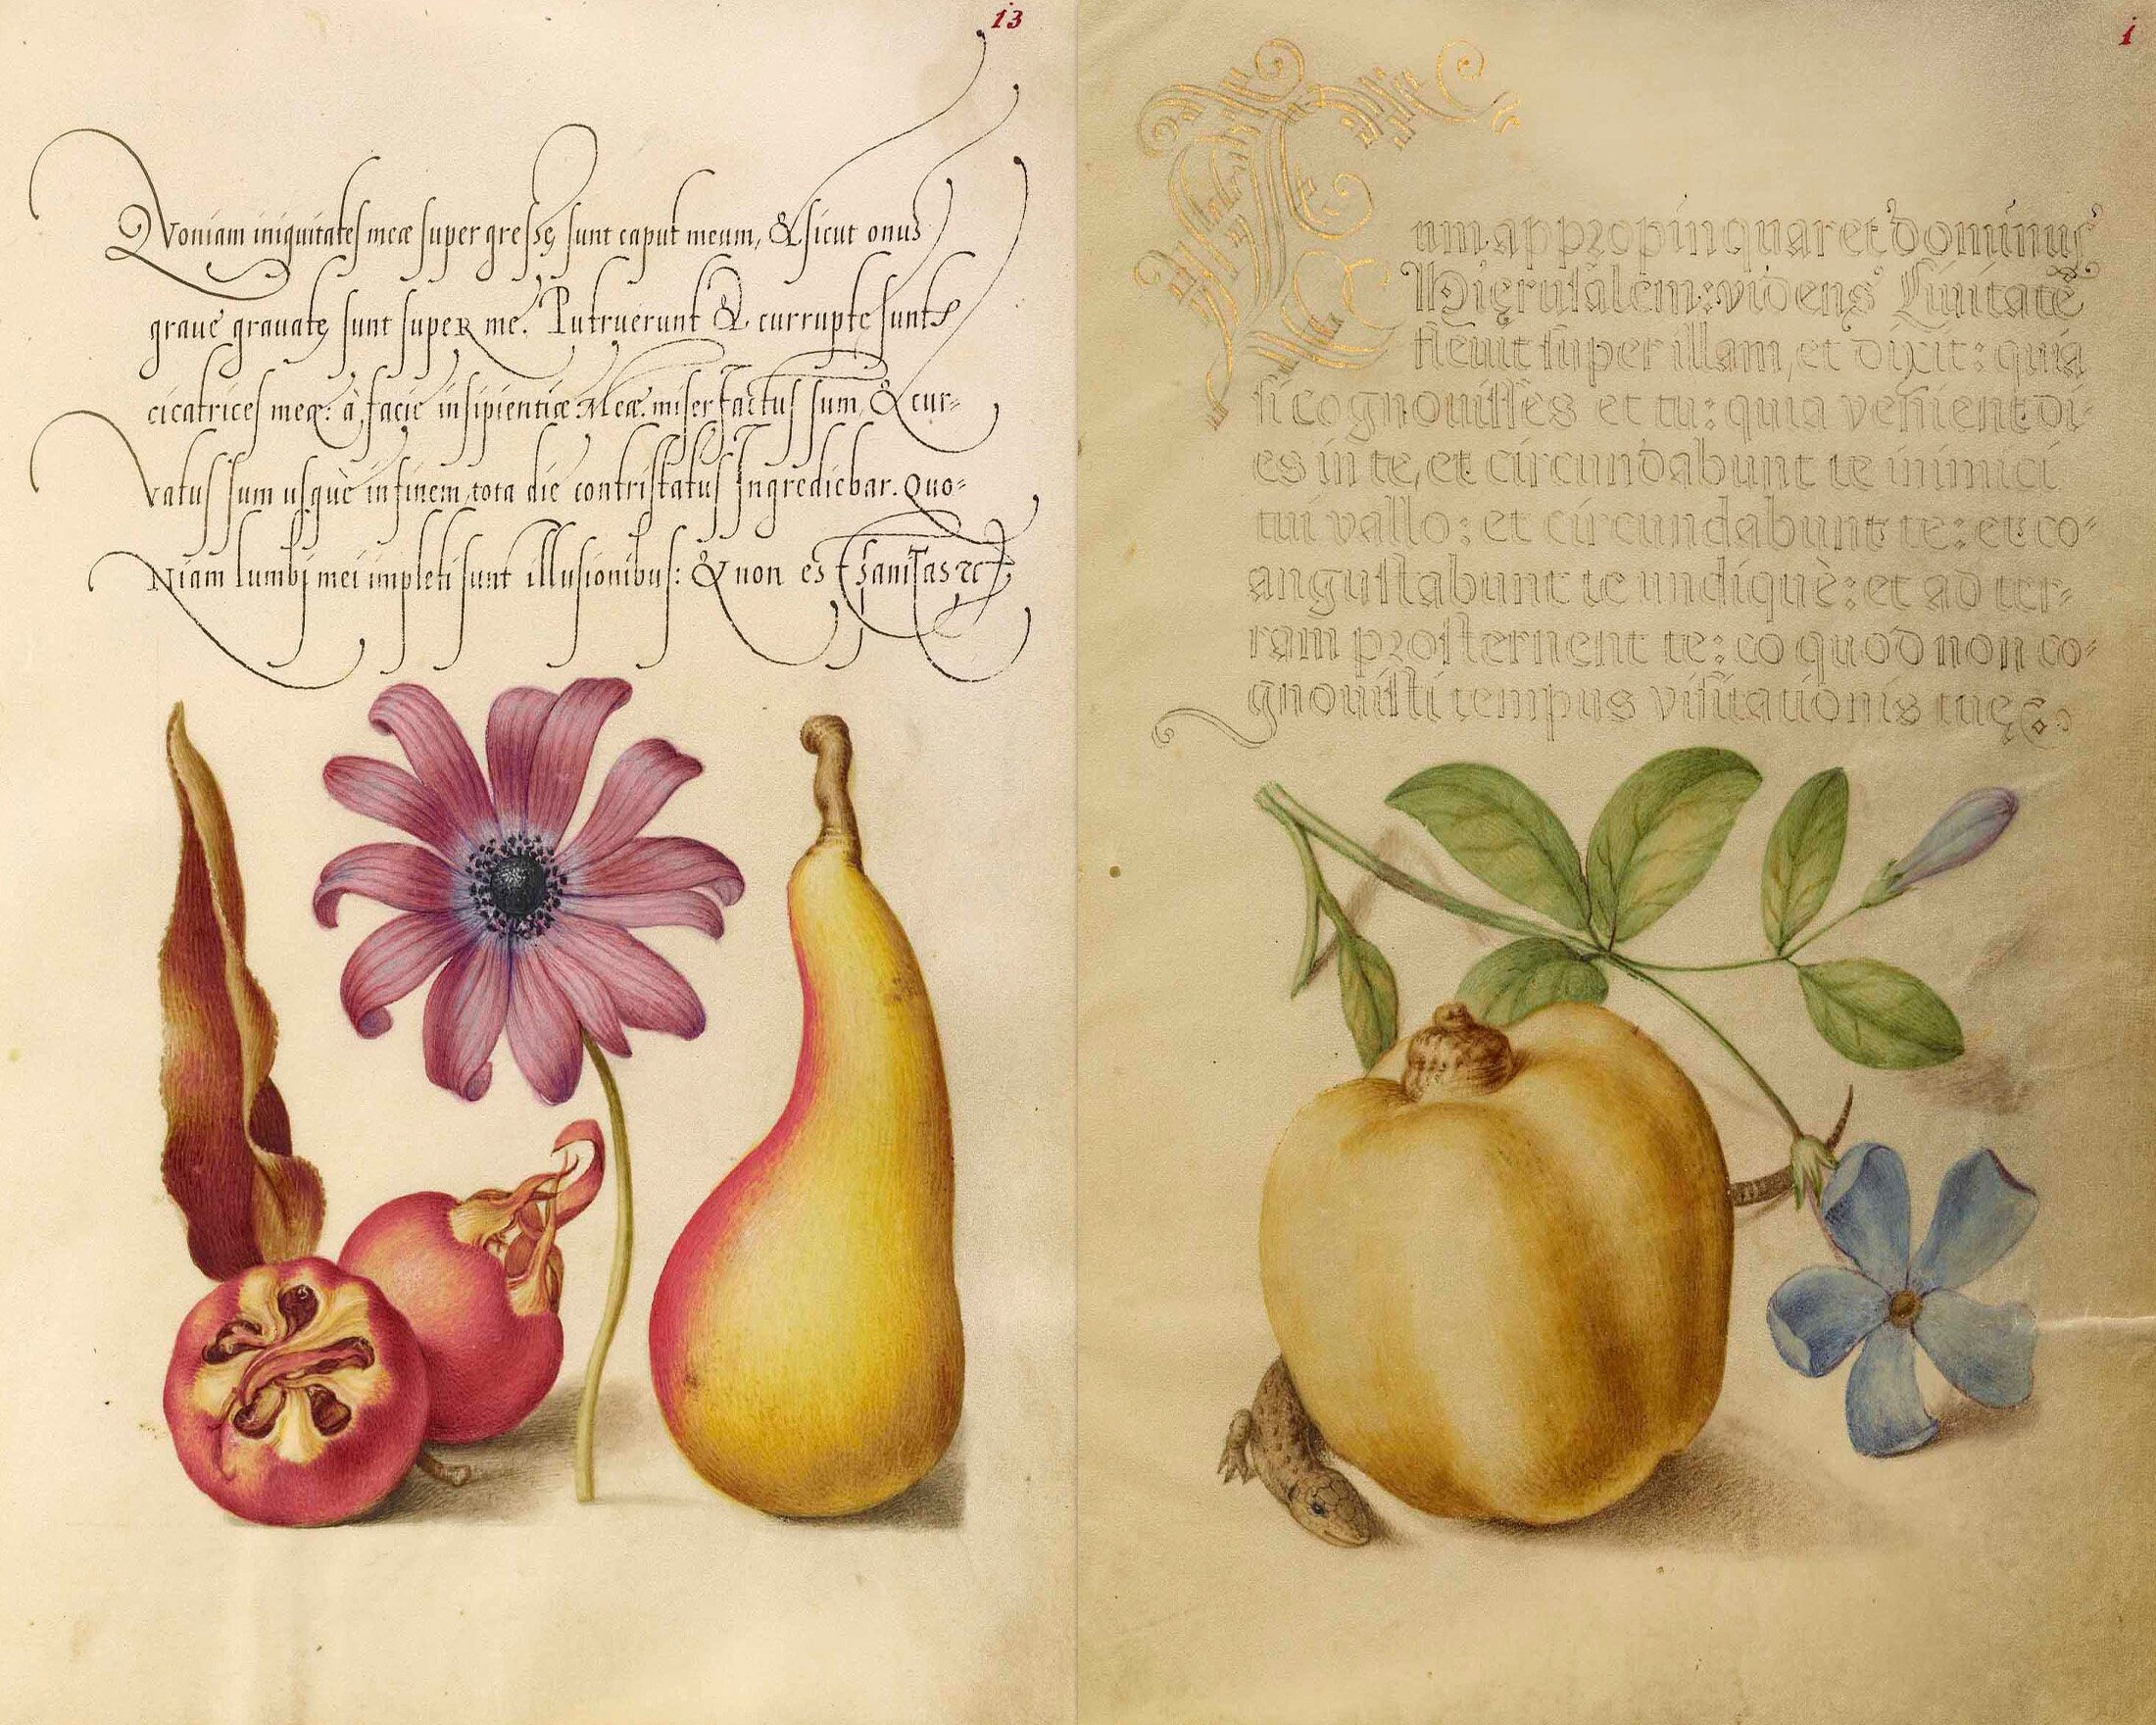 13
Qvoniam iniquitates meæ super gressę sunt caput meum, & sicut onus
graue grauatę sunt super me. Putruerunt & currupte sunt
cicatrices meę: à facie insipientiæ Meæ. miser factus sum, & cur-
vatus sum usquè in finem, tota die contristatus Ingrediebar. Quo-
Niam lumbi mei impleti sunt illusionibus: & non est sanitas &c
i
Cum appropinquaret dominus
Hięrusalem: videns Ciuitatē
fleuit super illam, et dixit: quia
si cognouisses et tu: quia venient di-
es in te, et circundabunt te inimici
tui vallo: et circundabunt te: et co-
angustabunt te undiquè: et ad ter-
ram prosternent te: eo quod non co-
gnouisti tempus visitationis tuę